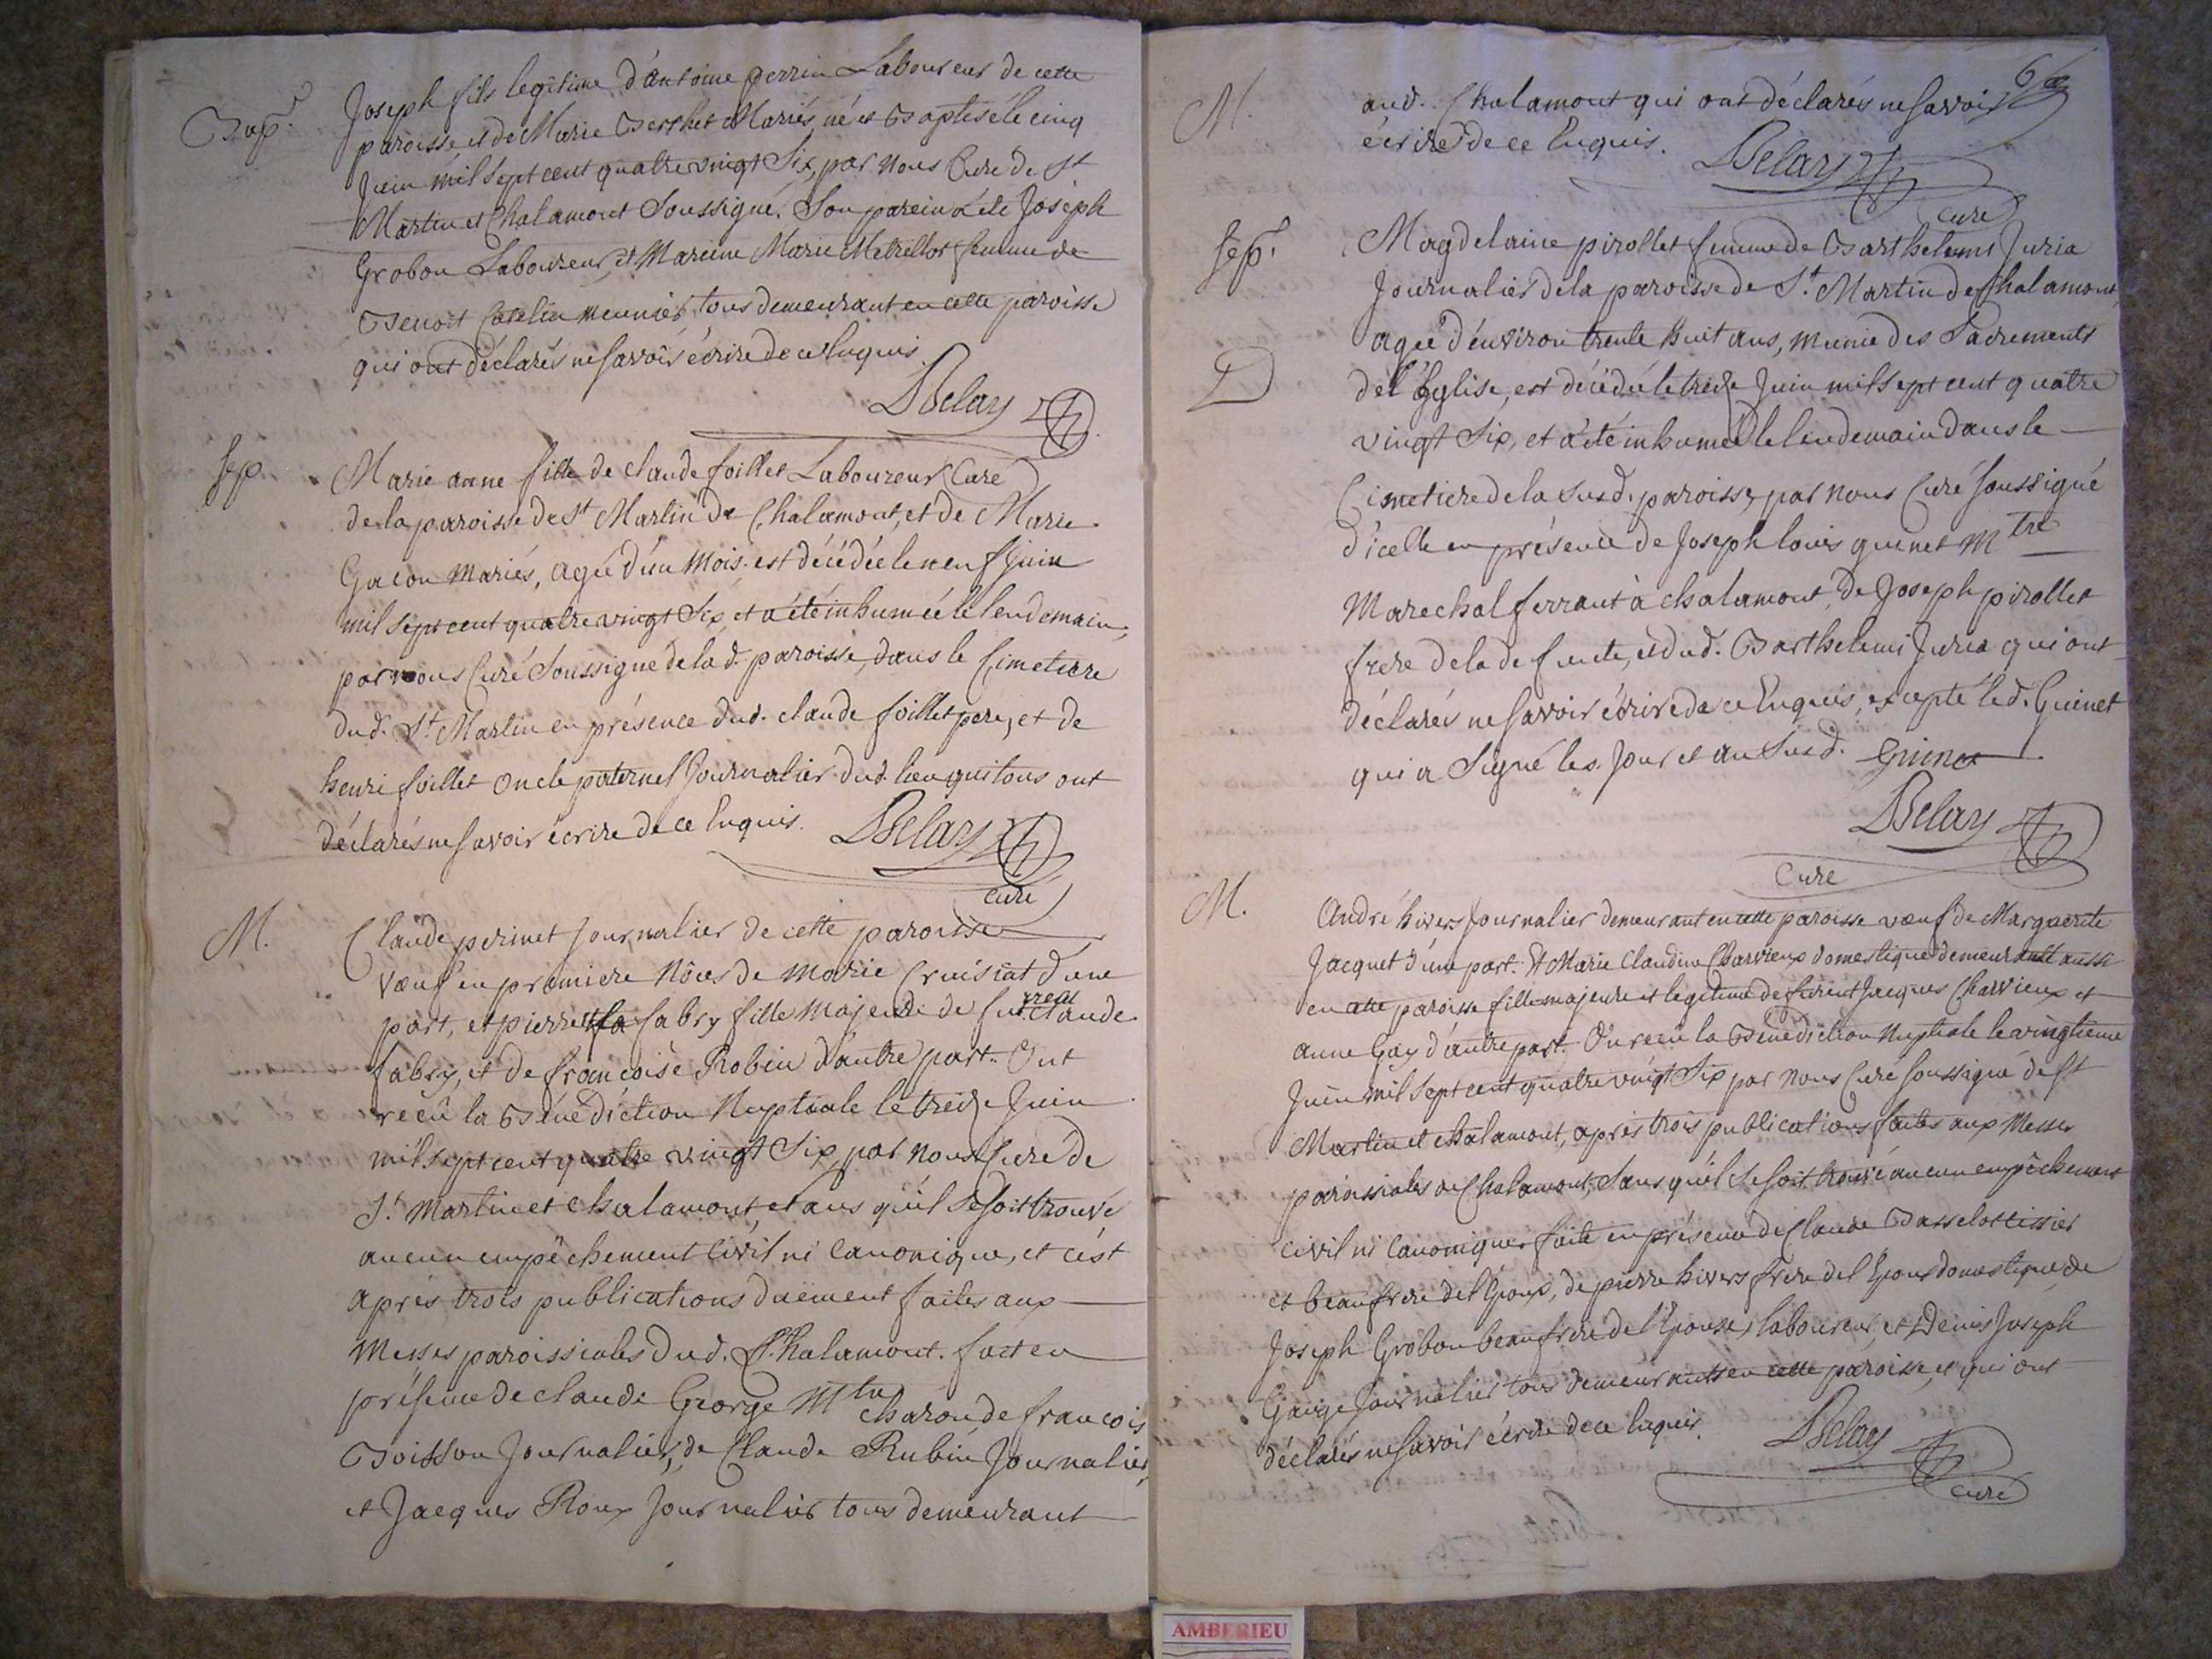 Bap.t
Joseph fils legitime d'antoine perrin Laboureur de cette
paroisse et de Marie Berthet Mariés, né et Baptisé le cinq
Juin mil sept cent quatre vingt Six, par nous Curé de St
Martin et Chalamont Soussigné. Son parein a été Joseph
Grobon Laboureur, et Mareine Marie Metrillot femme de
Benoit Catelin meunier, tous demeurant en cette paroisse
qui ont déclarés ne savoir écrire de ce Enquis.
DBelay
Curé
Sep.
Marie anne fille de claude foillet Laboureur
de la paroisse de St Martin de Chalamont, et de Marie
Gacon mariés, agée d'un mois est décédée le neuf Juin
mil sept cent quatre vingt Six, et a été inhumée le lendemain,
par nous Curé Soussigné de la d. paroisse, dans le Cimetiere
dud. St Martin en présence dud. claude foillet pere, et de
henri foillet oncle paternel Journalier dud. lieu qui tous ont
déclarés ne savoir écrire de ce Enquis. DBelay
curé
M.
Claude perinet Journalier de cette paroisse
vœuf en premiere Nôces de Marie Cruisiat d'une
part, et pierrette fabry fille majeure de feu Claude
fabry, et de françoise Robin d'autre part. Ont
reçû la Bénédiction Nuptiale le treize Juin
mil sept cent quatre vingt Six, par nous Curé de
St. Martin et Chalamont, sans qu'il se soit trouvé
aucun empêchement Civil ni Canonique, et c'est
après trois publications duëment faites aux
Messes paroissiales dud. Chalamont. fait en
présence de claude George Mtre charon de françois
Boisson Journalier, de Claude Rubin Journalier,
et Jacques Roux Journalier tous demeurant
6
M.
aud. Chalamont qui ont déclarés ne savoir
écrire de ce Enquis. DBelay
curé
Sep.
Magdelaine pirollet femme de Barthelemi Juria
Journalier de la paroisse de St. Martin de Chalamont
agée d'environ trente huit ans, munie des Sacrements
de l'Eglise, est décédée le treize Juin mil sept cent quatre
vingt Six, et a été inhumée le lendemain dans le
Cimetiere de la susd. paroisse, par nous Curé soussigné
d'icelle en présence de Joseph louis guinet Mtre
Marechal ferrant à chalamont, de Joseph pirollet
frere de la defunte, et dud. Barthelemi Juria qui ont
déclarés ne savoir écrire de ce Enquis, excepté led. Guinet
qui a Signé les Jour et an Susd. Guinet
DBelay
Curé
M.
André hivers Journalier demeurant en cette paroisse vœuf de Marguerite
Jacquet d'une part. Et Marie Claudine Charvieux domestique demeurant aussi
en cette paroisse fille majeure et legitime de Jacques Charvieux et
anne Gay d'autre part. On reçu la Bénédiction Nuptiale le vingtieme
Juin mil sept cent quatre vingt Six par nous Curé soussigné de St
Martin et chalamont, après trois publications faites aux Messes
paroissiales de Chalamont, Sans qu'il se soit trouvé aucun empêchement
civil ni Canonique, faite en présence de Claude Basselot tissier
et beaufrere de l'Epoux, de pierre hivers frere de l'Epoux domestique, de
Joseph Grobon beaufrere de l'Epouse, laboureur, et Denis Joseph
Gauge Journalier tous demeurants en cette paroisse, et qui ont
déclarés ne savoir écrire de ce Enquis. DBelay
curé
AMBERIEU